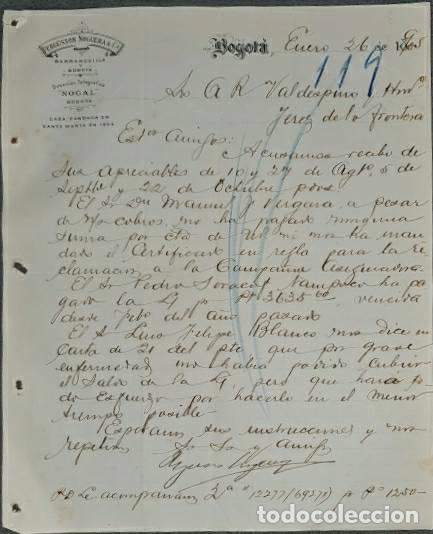 FERGUSSON NOGUERA & Co.
BARRANQUILLA
BOGOTA
Dirección Telegráfica
"NOGAL"
BOGOTA
CASA FUNDADA EN
SANTA MARTA EN 1854
Bogotá, Enero 26 de 1905
119
Sr A R Valdespino y Hno
Jerez de la Frontera
Estos Amigos:
Acusamos recibo de
sus apreciables de 10 y 27 de Agto, 5 de
Septbe y 22 de Octubre ppos.
El Sr Dn Manuel J Vergara a pesar
de ntos cobros, no ha pagado ninguna
suma por cta de Uds ni nos ha man
dado el Certificado en regla para la re
clamacion a la Compañia Aseguradora.
El Sr Pedro tampoco ha pa
gado la L/ por Pts 3635.60 vencida
desde Febo del año pasado
El Sr Lino Felipe Blanco nos dice en
carta de 21 del pte que por grave
enfermedad no habia podido cubrir
el saldo de la L/, pero que hara to
do esfuerzo por hacerlo en el menor
tiempo posible—
Esperamos sus instrucciones y nos
repetimos Ss Ss y Amigos
PD Le acompañamos 2ª 12277/69270 p Pº 1250—
todocoleccion.net